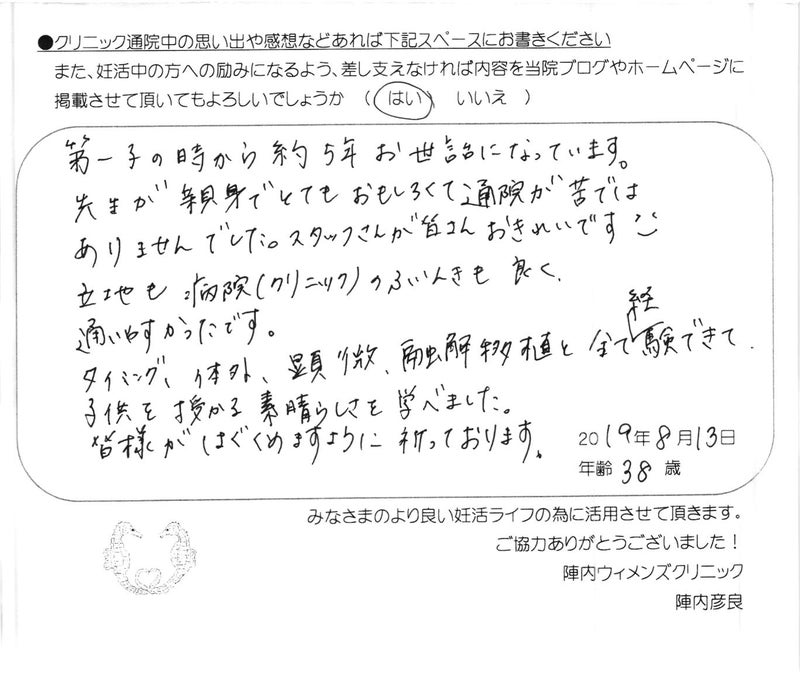 ●クリニック通院中の思い出や感想などあれば下記スペースにお書きください
また、妊活中の方への励みになるよう、差し支えなければ内容を当院ブログやホームページに
掲載させて頂いてもよろしいでしょうか （ はい いいえ ）
第一子の時から約5年お世話になっています。
先生が親身でとてもおもしろくて通院が苦では
ありませんでした。スタッフさんが皆さんおきれいです
立地も病院(クリニック)のふいんきも良く、
通いやすかったです。
タイミング、体外、顕微、融解移植と全て経験できて、
子供を授かる素晴らしさを学べました。
皆様がはぐくめますように祈っております。
2019年8月13日
年齢 38歳
みなさまのより良い妊活ライフの為に活用させて頂きます。
ご協力ありがとうございました！
陣内ウィメンズクリニック
陣内彦良